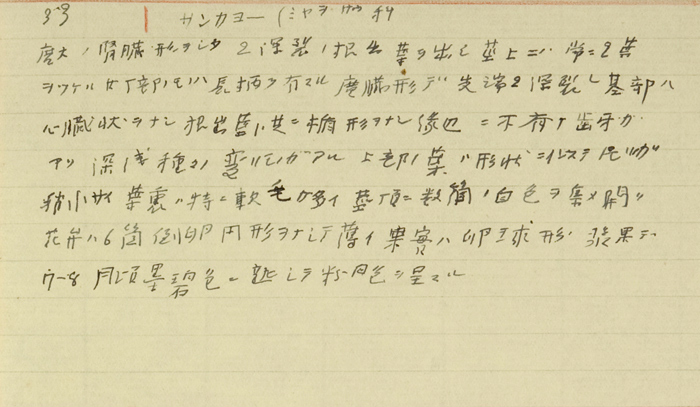 33 サンカヨー (ミヤオソウ科
厖大ノ腎臓形ヲシタ2深裂ノ根出葉ヲ出シ茎上ニハ常ニ2葉
ヲツケル 下部ノモノハ長柄ヲ有スル 腎臓形デ先端2深裂シ基部ハ
心臓状ヲナシ 根出葉ハ共ニ楯形ヲナシ縁辺ニ不斉ナ歯牙ガ
アリ深浅種々変リガアル 上部ノ葉ハ形状ハ
稍小サイ 葉裏ハ特ニ軟毛ガ多イ 茎頂ニ数箇ノ白色ヲ集メ開ク
花弁ハ6箇倒卵円形ヲナシテ薄イ 果実ハ卵球形 漿果デ
7-8月頃墨碧色ニ熟シテ粉白色ヲ呈スル